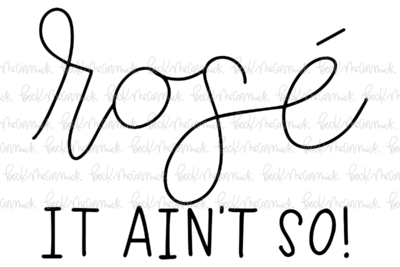 rosé
IT AIN'T SO!